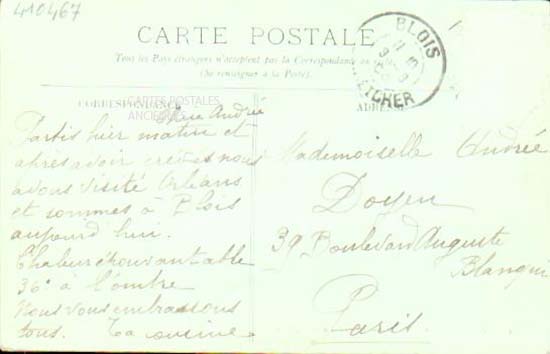 410467
CARTE POSTALE
Tous les Pays étrangers n'acceptent pas la Correspondance au
(Se renseigner à la Poste).
BLOIS
LOIR-ET-CHER
CORRESPONDANCE
CARTES POSTALES
ANCIENNES
ADRESSE
André
Partis hier matin et
après avoir nous
avons visité Orléans
et sommes à Blois
aujourd'hui.
Chaleur épouvantable
36° à l'ombre
Nous vous embrassons
tous. Ta
Mademoiselle Andrée
Doyen
39 Boulevard Auguste
Blanqui
Paris.